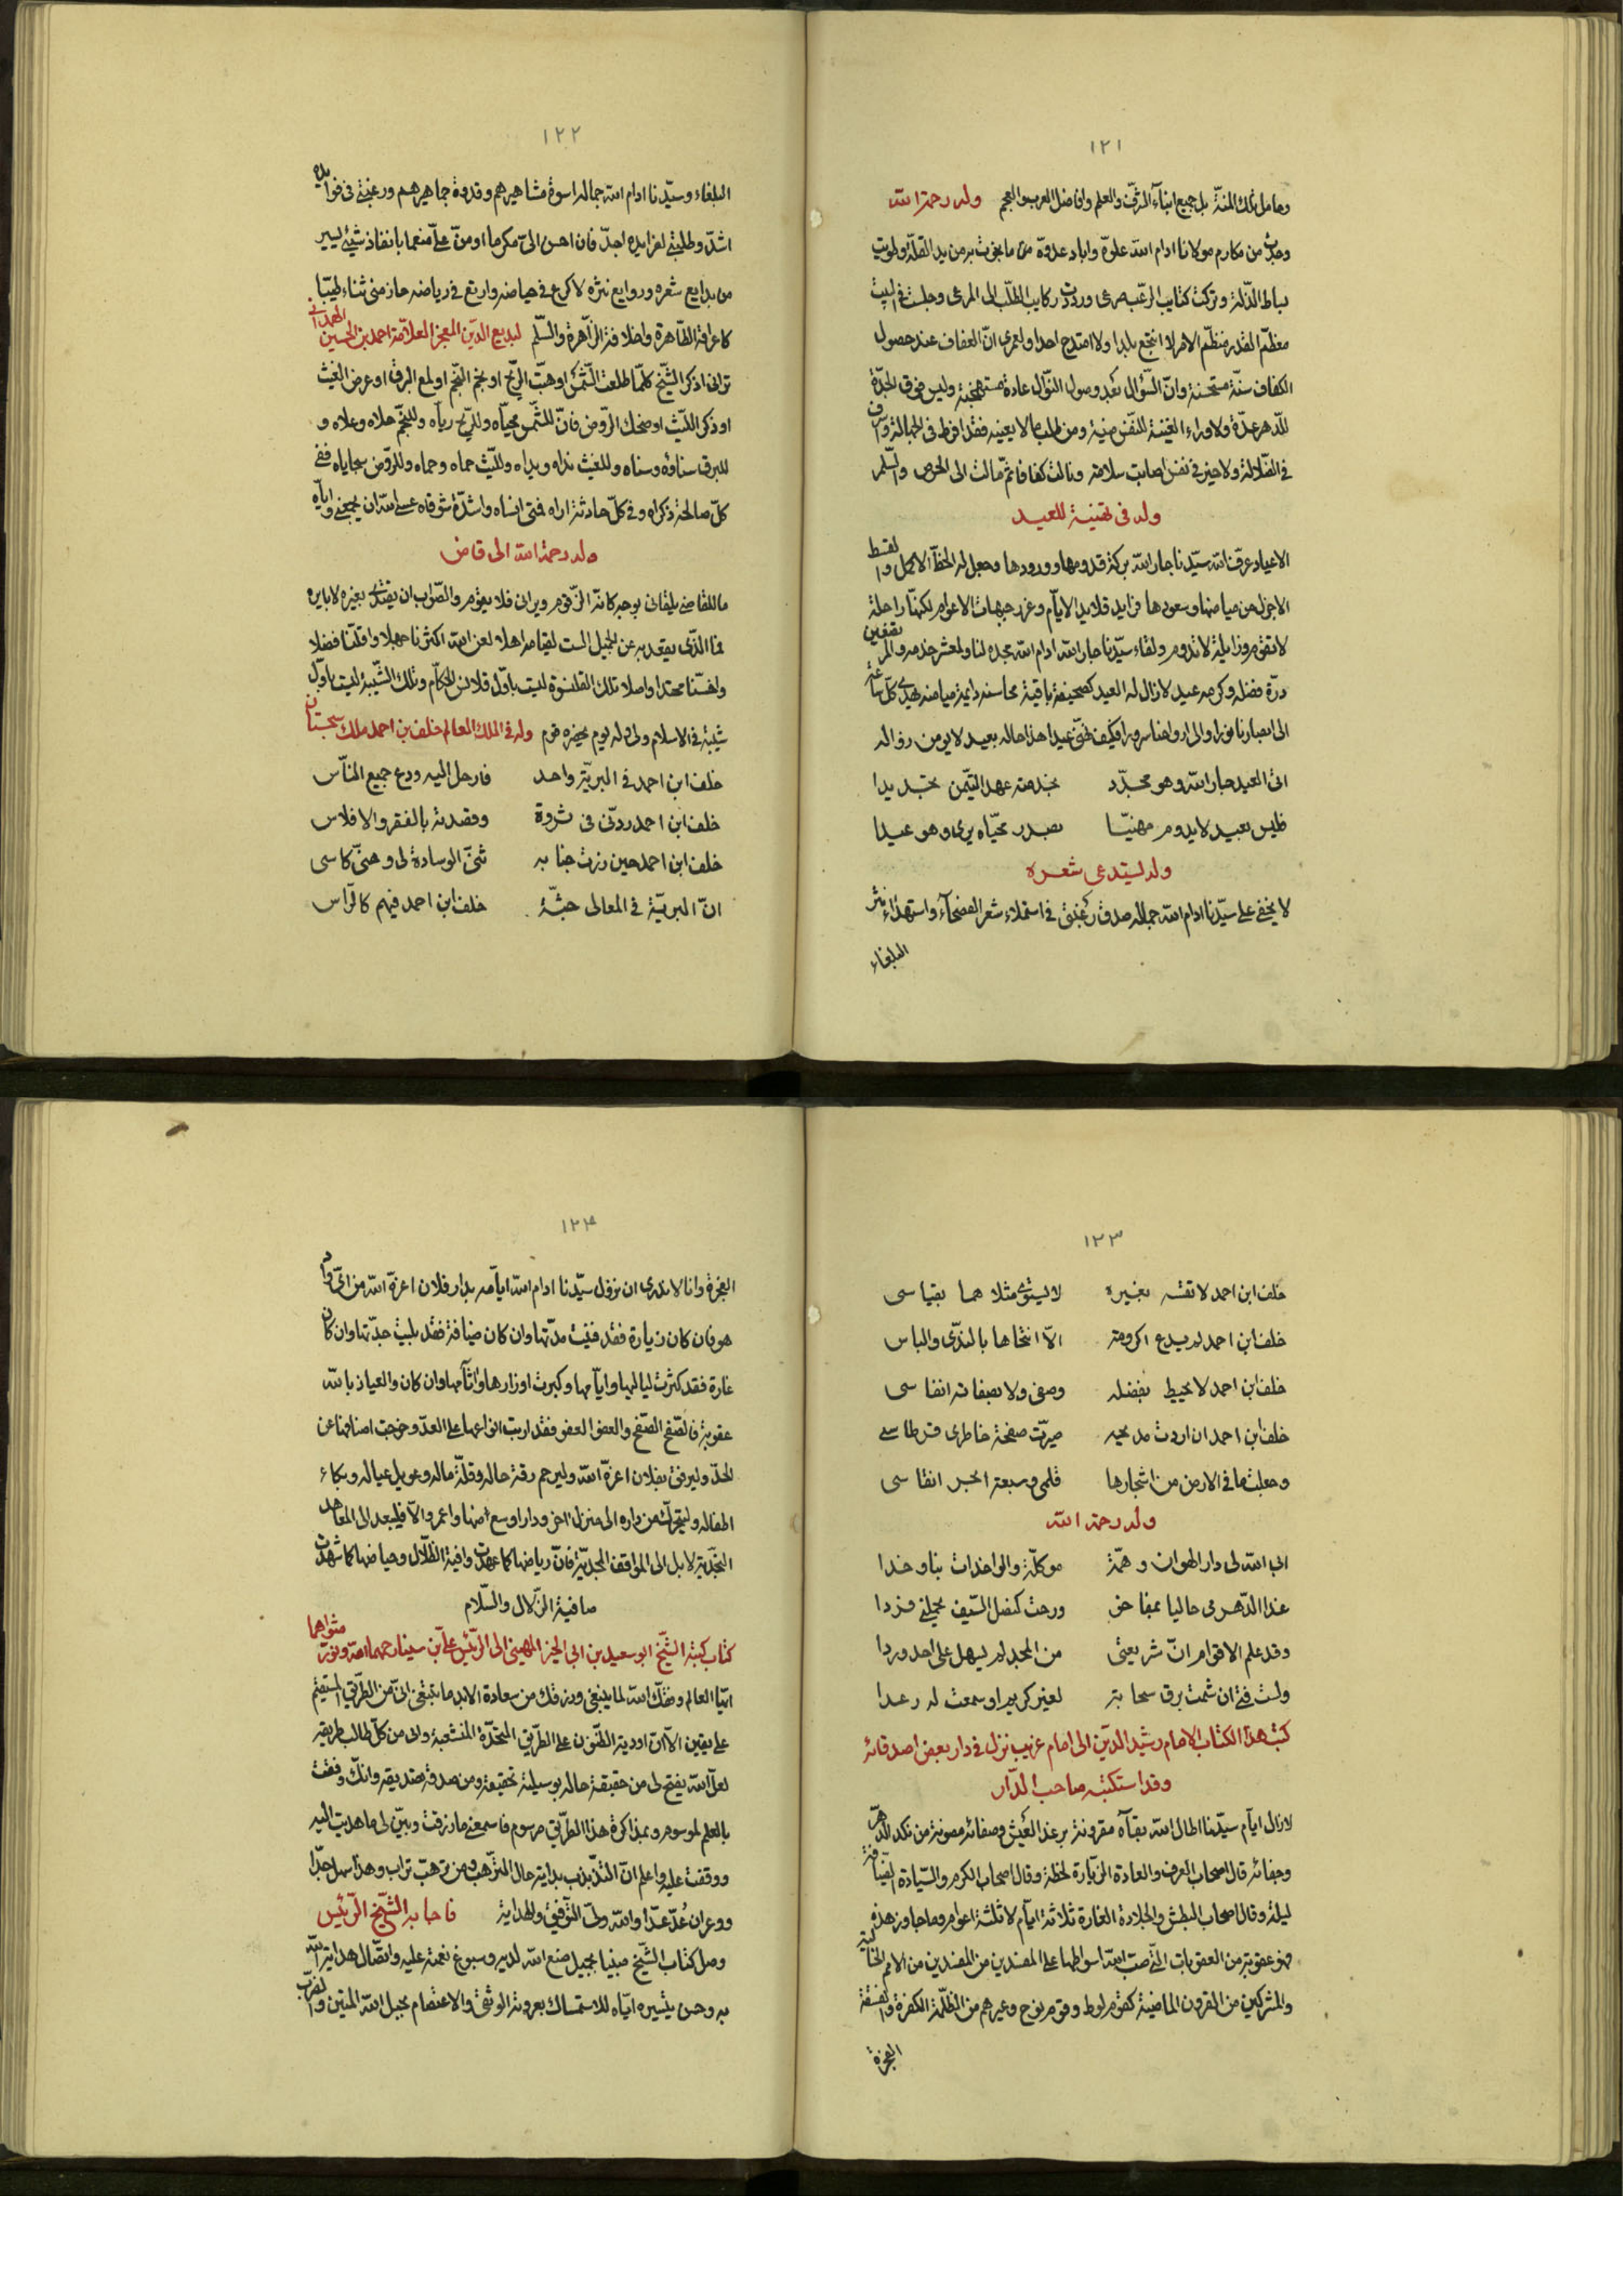 ١٢١
وحامل تلك المنة بل جميع ابناء الشرف والعلم وافاضل العرب والعجم وله رحمة الله
وجدت من مكارم مولانا ادام الله علوه واباد عدوه من ما نجوت به من يد القلة وطويت
بساط الذلة وتركت كتايب الرغب صرعى ورددت ركايب الطلب الى المرعى وجلست في البيت
معظم القدر منظم الامر لا انتجع بلدا ولا امتدح احدا ولعمري ان العفاف عند حصول
الكفاف سنة مستحسنة وان السؤال بعد وصول النوال عادة مستهجنة وليس فوق الجدة
للدهر عدة ولا وراء الغنية للنفس منية ومن طلب ما لا يعينه فقد افرط في الجهالة واسرف
في الضلالة ولا خير في نفس اصابت سلامة ونالت كفافا ثم مالت الى الحرص والسلم
وله في تهنية للعيد
الاعياد عرف الله سيدنا جار الله بركة قدومها وورودها وجعل له الحظ الاكمل والقسط
الاجزل من ميامنها وسعودها فرايد قلايد الايام وغرر جبهات الاعوام لكنها راحلة
لا تقوم وزايلة لا تدوم ولقاء سيدنا جار الله ادام الله مجده لنا ولمعشر خدمه والمرتضعين
درة فضله وكرمه عيد لا زال له العيد كصحيفة باقية محاسنه دايمة ميامنه يهدي كل ساعة
الى ابصارنا نورا والى ارواحنا سرورا فكيف نهنى عيدا هذا حاله بعيد لا يومن زواله
اتى العيد جار الله وهو مجدد بخدمته عهد التيمن تجديدا
فليس بعيد لا يدوم مهنيا بصدر محياه يرى وهو عيدا
وله يستدعي شعره
لا يخفى على سيدنا ادام الله جماله صدق رغبتي في استملاء شعر الفصحاء واستهداء نثر
البلغاء
١٢٢
البلغاء وسيدنا ادام الله جماله اسوة مشاهيرهم وقدوة جماهيرهم ورغبتي في فوايده
اشد وطلبتي لفرايده اجد فان احسن الى مكرما او من على منعما بانفاذ شيئ يسير
من بدايع شعره وروايع نثره لاكرع في حياضه وارتع في رياضه حاز مني ثناء طيبا
كاعراقه الطاهرة واخلاقه الزاهرة والسلم لبديع الدين المعجز العلامة احمد بن الحسين الهمداني
تراني اذكر الشيخ كلما طلعت الشمس او هبت الريح او نجم النجم او لمع البرق او عرض الغيث
او ذكر الليث او ضحك الروض فان للشمس محياه وللريح رياه وللنجم حلاه وعلاه و
للبرق سناؤه وسناه وللغيث نداه ويداه ولليث حماه وحماه وللروض سجاياه ففي
كل صالحة ذكراه وفي كل حادثة اراه فمتى انساه واشدة شوقاه عسى الله ان يجمعني واياه
وله رحمة الله الى قاض
ما للقاضي يلقاني بوجه كانه الزقوم ويراني فلا يقوم والصواب ان يقتدي بغيره لا بايره
فما الذي يقعد به عن الجميل الست لقيامه اهلا لعن الله اكثرنا جهلا واقلنا فضلا
واخسنا محتدا واصلا تلك القلنسوة ليست باول قلانس الحكام وتلك الشيبة ليست باول
شيبة في الاسلام ولي وله يوم يحضره قوم وله في الملك العالم خلف بن احمد ملك سجستان
خلف ابن احمد في البرية واحد فارحل اليه ودع جميع الناس
خلف ابن احمد ردني في ثروة وقصدته بالفقر والافلاس
خلف ابن احمد حين زرت جنابه ثنى الوسادة لي وهنى كاسى
ان البرية في المعالي جثة خلف ابن احمد فيهم كالراس
١٢٣
خلف ابن احمد لا تقسه بغيره لا يستوي مثلاهما بقياسى
خلف ابن احمد لم يدع اكرومة الا انتحاها بالندى والباس
خلف ابن احمد لا يحيط بفضله وصفى ولا بصفاته انفاسى
خلف ابن احمد ان اردت مديحه صيرت صفحة خاطرى قرطاسى
وجعلت ما في الارض من اشجارها قلمى وسبعة ابحر انقاسى
وله رحمة الله
ابى الله لى دار الهوان وهمة موكلة والواخدات بنا وخدا
غدا الدهر بى حاليا بمفاخر ورحت كنصل السيف يحملنى فردا
وقد علم الاقوام ان شريعتى من المجد لم يسهل على احد وردا
ولست فتى ان شمت برق سحابة لغير كريم او سمعت له رعدا
كتب هذا الكتاب الامام رشيد الدين الى امام غريب نزل في دار بعض اصدقائه
وقد استكتبه صاحب الدار
لا زال ايام سيدنا اطال الله بقاه مقرونة برغد العيش وصفائه مصونة من نكد الدهر
وجفائه قال اصحاب العرف والعادة الزيارة لحظة وقال اصحاب الكرم والسيادة الضيافة
ليلة وقال اصحاب البطش والجلادة الغارة ثلاثة ايام لا ثلثة اعوام وما جاوز هذه
فهو عقوبة من العقوبات التى صب الله اسواطها على المفسدين من المفسدين من الامم الخالية
والمشركين من القرون الماضية كقوم لوط وقوم نوح وغيرهم من الظلمة الكفرة والفسقة
الفجرة
١٢٤
الفجرة وانا لا ندرى ان نزول سيدنا ادام الله ايامه بدار فلان اعزه الله من اى
هو فان كان زيارة فقد فنيت مدتها وان كان ضيافة فقد بليت جدتها وان كان
غارة فقد كثرت لياليها وايامها وكبرت اوزارها واثامها وان كان والعياذ بالله
عقوبة فالصفح الصفح والعفو العفو فقد اربت انواعها على العد وخرجت اصنافها عن
الحد وليرفق بفلان اعزه الله وليرحم رقة حاله وقلة ماله وعويل عياله وبكاء
اطفاله وليتحرك من داره الى منزل اخر ودار اوسع ارضها واعمر والا فليعد الى المعاهد
النجدية لا بل الى المواقف المجدية فان رياضها كما عهدت وافية الظلال وحياضها كما شهدت
صافية الزلال والسلام
كتاب كتبه الشيخ ابو سعيد بن ابى الخير المهينى الى الرئيس على بن سينا رحمهما الله ونور مثواهما
ايها العالم وفقك الله لما ينبغى ورزقك من سعادة الابد ما تبتغى انى من الطريق المستقيم
على يقين الا ان اودية الظنون على الطريق المتجددة المنشعبة وانى من كل طالب طريقه
لعل الله يفتح لى من حقيقة حاله بوسيلة تحقيقه ومن صدقه تصديقه وانك وفقت
بالعلم لموسوم وبمذاكرة هذا الطريق مرسوم فاسمعنى ما رزقت وبين لى ما هديت اليه
ووقفت عليه واعلم ان التذبذب بداية حال الترهب ومن ترهب تراب وهذا سهل جدا
ووعر ان عد عدا والله ولى التوفيق والهداية فاجابه الشيخ الرئيس
وصل كتاب الشيخ مبنيا بجميل صنع الله لديه وسبوغ نعمة عليه واتصال هداية الله
به وحسن تيسيره اياه للاستمساك بعروته الوثقى والاعتصام بحبل الله المتين والضرب